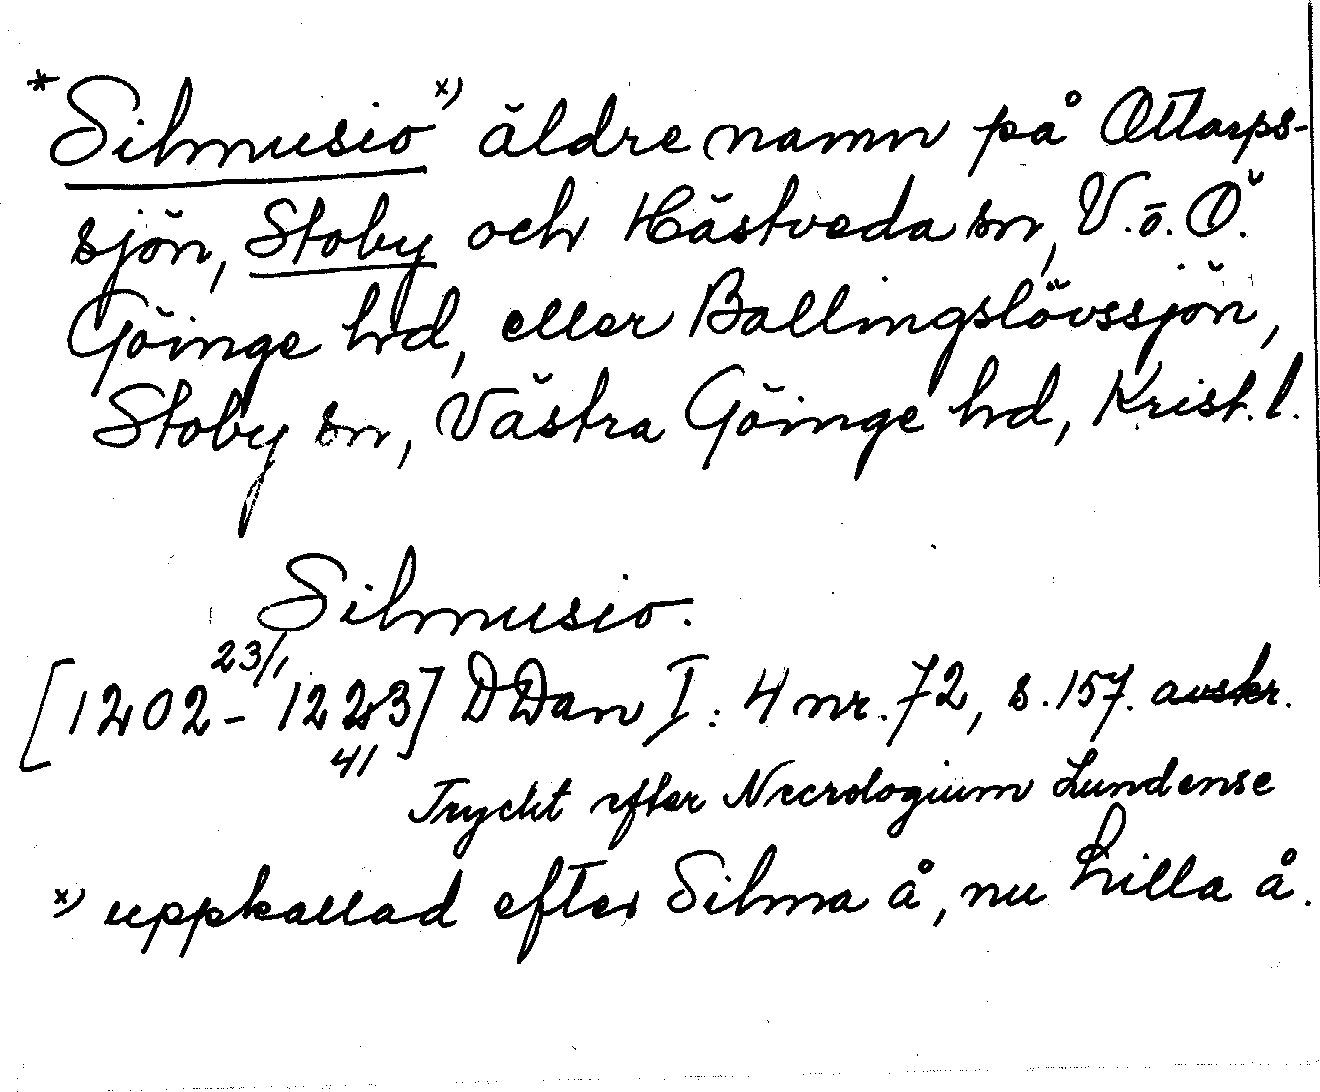 * Silmusio x) äldre namn på Ottarps-
sjön, Stoby och Hästveda sn, V. o. Ö.
Göinge hd, eller Ballingslövssjön,
Stoby sn, Västra Göinge hd, Krist. l.
Silmusio.
[1202 - 23/1 1223] DDan I: 4 nr. 72, s. 157. avskr.
41
Tryckt efter Necrologium Lundense
x) uppkallad efter Silma å, nu Lilla å.